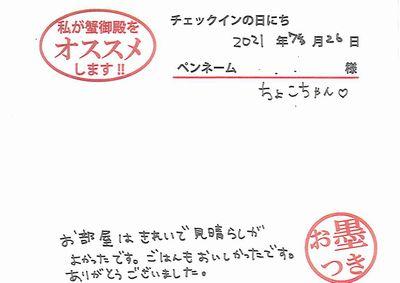 私が蟹御殿を
オススメ
します!!
チェックインの日にち
2021 年 月26日
ペンネーム . . 様
ちょこちゃん♡
お部屋はきれいで見晴らしが
よかったです。ごはんもおいしかったです。
ありがとうございました。
お墨
つき